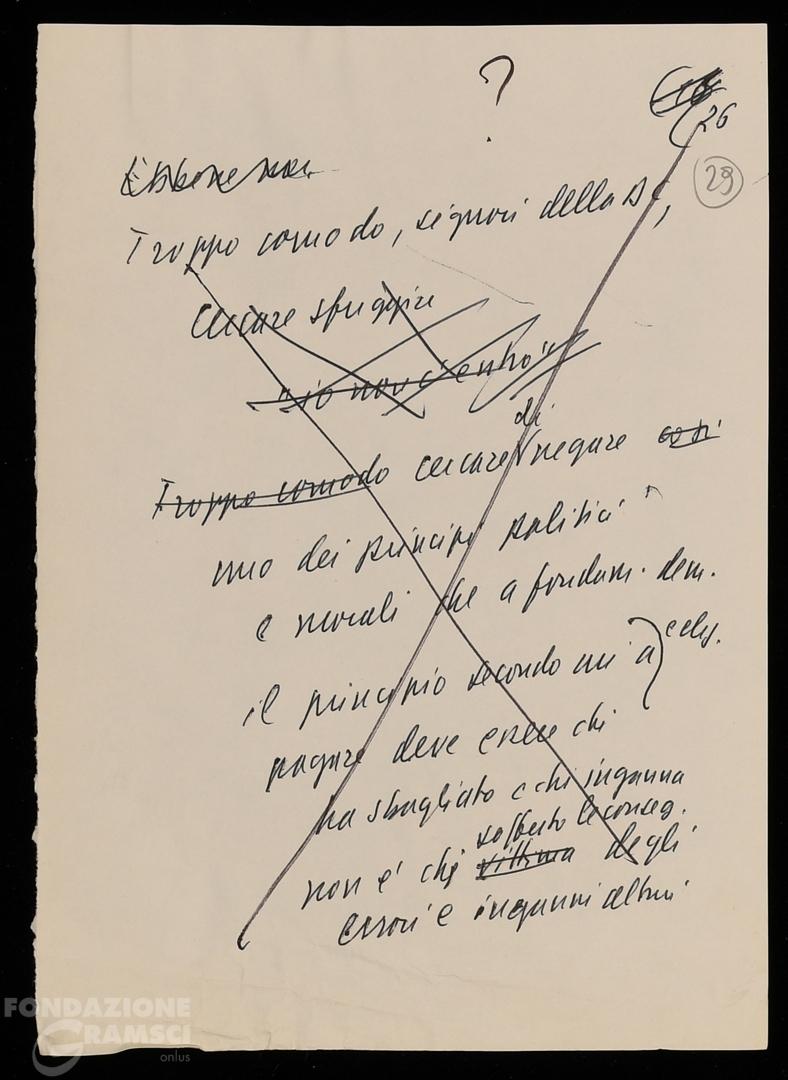 ?
26
29
Ebbene no
Troppo comodo, signori della DC,
cercare sfuggire
"io non c'entro"
Troppo comodo cercare di negare così
uno dei principi politici
e morali che a fondam. dem.
il principio secondo cui a
pagare deve essere chi
ha sbagliato e chi inganna
non è chi vittima sofferto le conseg. degli
errori e inganni altrui
FONDAZIONE
GRAMSCI
onlus